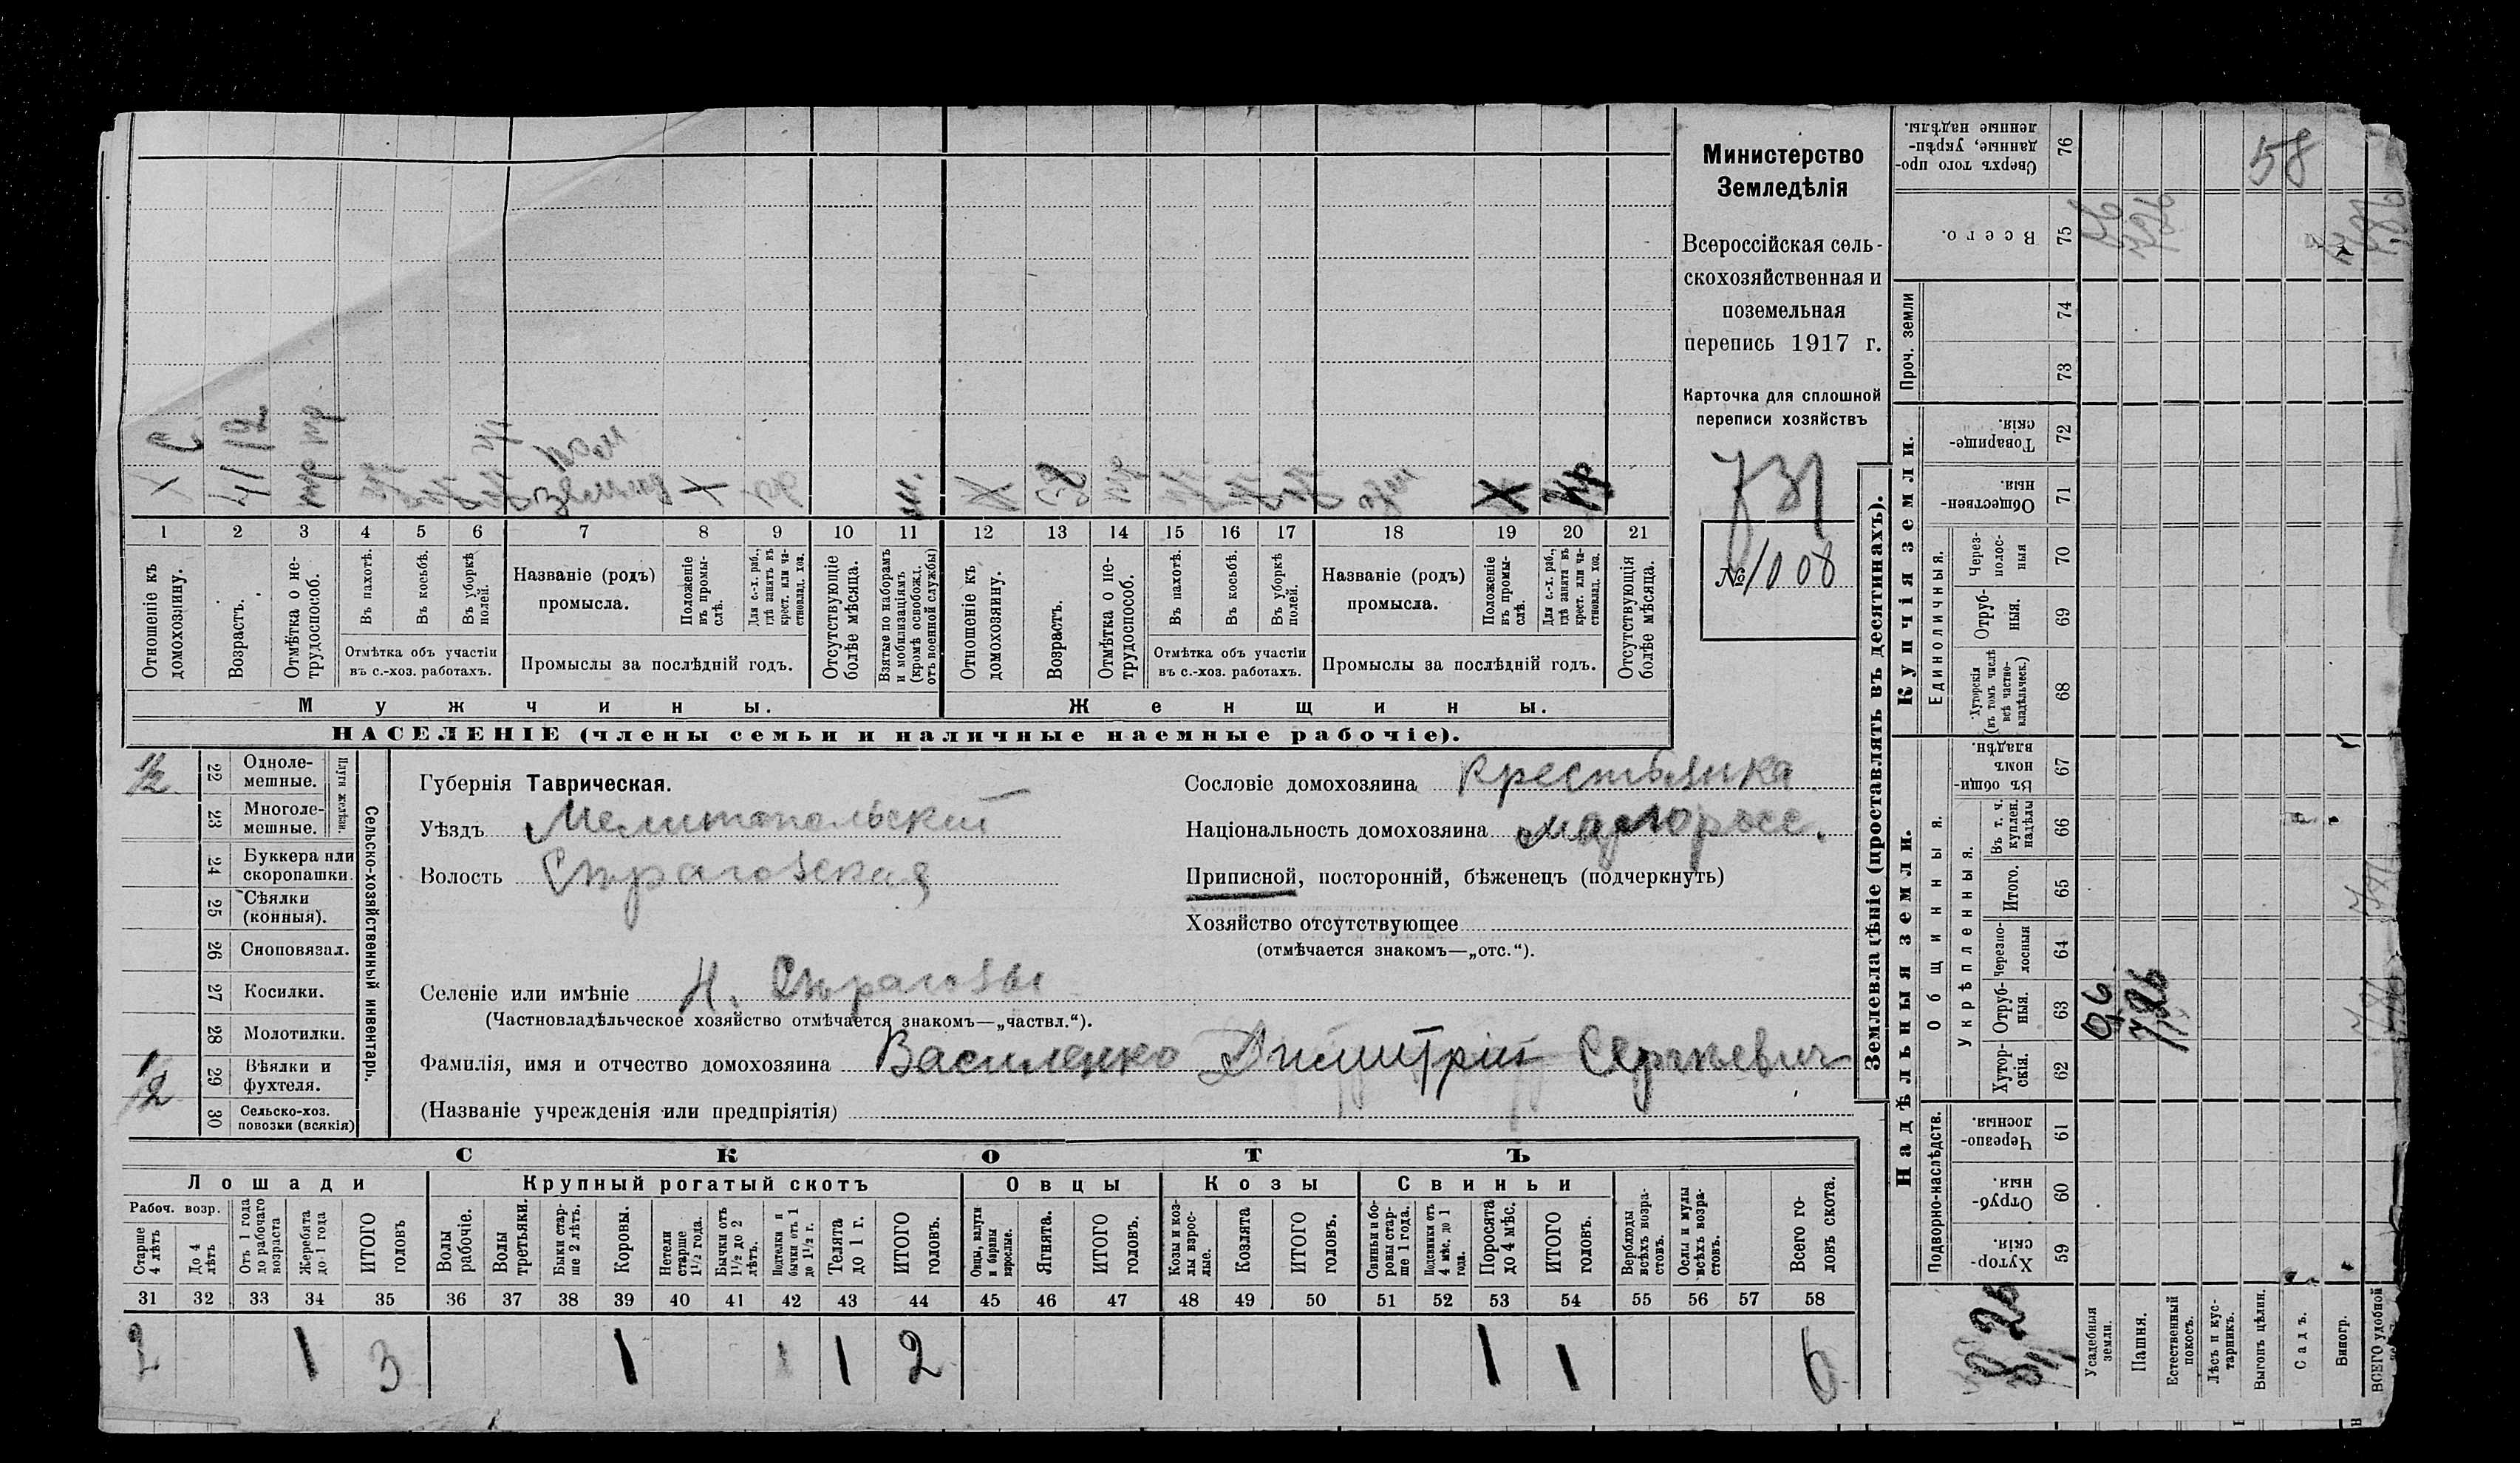 Министерство
Земледѣлія
Всероссійская сель-
скохозяйственная и
поземельная
перепись 1917 г.
Карточка для сплошной
переписи хозяйствъ
731
№ 1008
Х 41 тр земл Х Х 38 Х
С 12
1 2 3 4 5 6 7 8 9 10 11 12 13 14 15 16 17 18 19 20 21
Отношеніе къ домохозяину.
Возрастъ.
Отмѣтка о не-трудоспособ.
Въ пахотѣ.
Въ косьбѣ.
Въ уборкѣ полей.
Отмѣтка объ участіи
въ с.-хоз. работахъ.
Названіе (родъ)
промысла.
Положеніе въ промы-слѣ.
Для с.-х. раб., гдѣ занятъ въ крест. или ча-стновлад. хоз.
Промыслы за послѣдній годъ.
Отсутствующіе болѣе мѣсяца.
Взятые по наборамъ и мобилизаціямъ (кромѣ освобожд. отъ военной службы)
Отношеніе къ домохозяину.
Возрастъ.
Отмѣтка о не-трудоспособ.
Въ пахотѣ.
Въ косьбѣ.
Въ уборкѣ полей.
Отмѣтка объ участіи
въ с.-хоз. работахъ.
Названіе (родъ)
промысла.
Положеніе въ промы-слѣ.
Для с.-х. раб., гдѣ занята въ крест. или ча-стновлад. хоз.
Промыслы за послѣдній годъ.
Отсутствующія болѣе мѣсяца.
Мужчины.
Женщины.
НАСЕЛЕНІЕ (члены семьи и наличные наемные рабочіе).
Сельско-хозяйственный инвентарь.
Плуги желѣзн.
1/2 22 Одноле-мешные.
23 Многоле-мешные.
24 Буккера или скоропашки.
25 Сѣялки (конныя).
26 Сноповязал.
27 Косилки.
28 Молотилки.
29 Вѣялки и фухтеля.
30 Сельско-хоз. повозки (всякія)
1/2
Губернія Таврическая.
Уѣздъ Мелитопольскій
Волость Сѣрагозская
Селеніе или имѣніе Н. Сѣрагозы
(Частновладѣльческое хозяйство отмѣчается знакомъ—„частвл.“).
Фамилія, имя и отчество домохозяина Василенко Димитрій Сергѣевич
(Названіе учрежденія или предпріятія)
Сословіе домохозяина Крестьянка
Національность домохозяина малоросс.
Приписной, посторонній, бѣженецъ (подчеркнуть)
Хозяйство отсутствующее
(отмѣчается знакомъ—„отс.“).
СКОТЪ
Лошади
Крупный рогатый скотъ
Овцы
Козы
Свиньи
Рабоч. возр.
Старше 4 лѣтъ
До 4 лѣтъ
Отъ 1 года до рабочаго возраста
Жеребята до 1 года
ИТОГО головъ
Волы рабочіе.
Волы третьяки.
Быки стар-ше 2 лѣтъ.
Коровы.
Нетели старше 1½ года.
Бычки отъ 1½ до 2 лѣтъ.
Подтелки и бычки отъ 1 до 1½ г.
Телята до 1 г.
ИТОГО головъ.
Овцы, валухи и бараны взрослые.
Ягнята.
ИТОГО головъ.
Козы и коз-лы взрос-лые.
Козлята
ИТОГО головъ.
Свиньи и бо-ровы стар-ше 1 года.
Подсвинки отъ 4 мѣс. до 1 года.
Поросята до 4 мѣс.
ИТОГО головъ.
Верблюды всѣхъ возра-стовъ.
Ослы и мулы всѣхъ возра-стовъ.
Всего го-ловъ скота.
31 32 33 34 35 36 37 38 39 40 41 42 43 44 45 46 47 48 49 50 51 52 53 54 55 56 57 58
2 1 3 1 1 1 2 1 1 6
Землевладѣніе (проставлять въ десятинахъ).
Надѣльныя земли.
Купчія земли.
Проч. земли
Подворно-наслѣдств.
Общинныя.
Укрѣпленныя.
Единоличныя.
59 Хутор-скія.
60 Отруб-ныя.
61 Черезпо-лосныя.
62 Хутор-скія.
63 Отруб-ныя.
64 Черезпо-лосныя
65 Итого.
66 Въ т. ч. куплен. надѣлы
67 Въ общи-номъ владѣн.
68 Хуторскія (въ томъ числѣ всѣ частно-владѣльческ.)
69 Отруб-ныя.
70 Через-полос-ныя
71 Обществен-ныя.
72 Товарище-скія.
73
74
75 Всего.
76 Сверхъ того про-данные, укрѣп-ленные надѣлы.
Усадебныя земли.
Пашня.
Естественный покосъ.
Лѣсъ и кус-тарникъ.
Выгонъ цѣлин.
Садъ.
Виногр.
ВСЕГО удобной
58